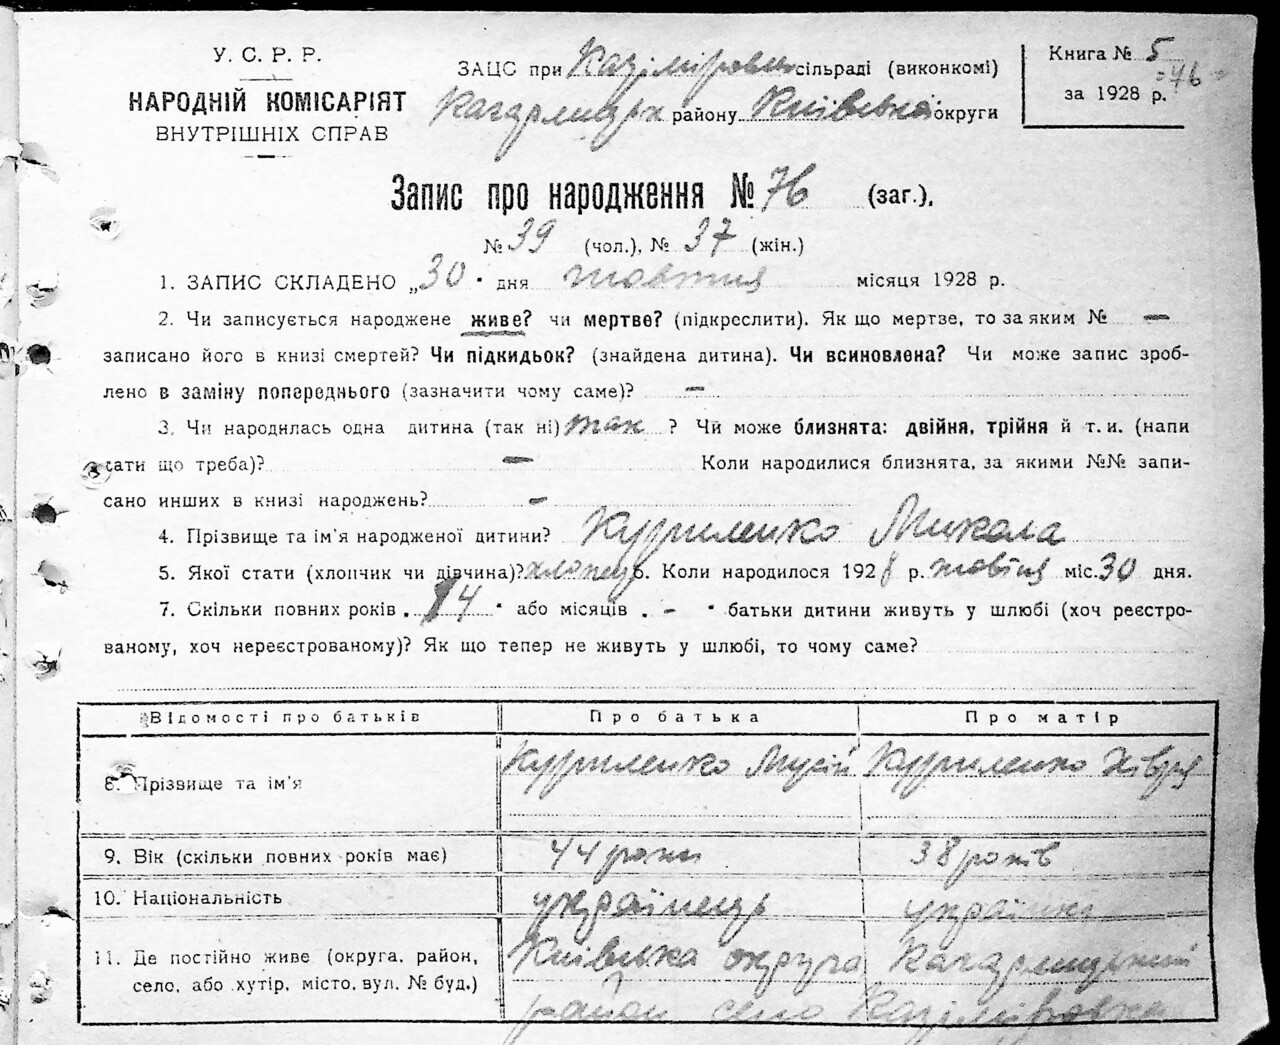 У. С. Р. Р.
НАРОДНІЙ КОМІСАРІЯТ
ВНУТРІШНІХ СПРАВ
ЗАЦС при Казіміровки сільраді (виконкомі)
Кагарлицьк району Київська округи
Книга № 5
=46=
за 1928 р.
Запис про народження № 76 (заг.).
№ 39 (чол.), № 37 (жін.)
1. ЗАПИС СКЛАДЕНО „30" дня жовтня місяця 1928 р.
2. Чи записується народжене живе? чи мертве? (підкреслити). Як що мертве, то за яким № —
записано його в книзі смертей? Чи підкидьок? (знайдена дитина). Чи всиновлена? Чи може запис зроб-
лено в заміну попереднього (зазначити чому саме)? —
3. Чи народилась одна дитина (так ні) так ? Чи може близнята: двійня, трійня й т. и. (напи
сати що треба)? — Коли народилися близнята, за якими №№ запи-
сано инших в книзі народжень? -
4. Прізвище та ім'я народженої дитини? Куриленко Микола
5. Якої стати (хлопчик чи дівчина)? хлопець 6. Коли народилося 1928 р. жовтня міс. 30 дня.
7. Скільки повних років „14" або місяців „-" батьки дитини живуть у шлюбі (хоч реєстро-
ваному, хоч нереєстрованому)? Як що тепер не живуть у шлюбі, то чому саме?
Відомості про батьків Про батька Про матір
8. Прізвище та ім'я Куриленко Мусій Куриленко Хівря
9. Вік (скільки повних років має) 44 роки 38 років
10. Національність українець українка
11. Де постійно живе (округа, район, Київська округа Кагарлицький
село, або хутір, місто, вул. № буд.) район село Казіміровка